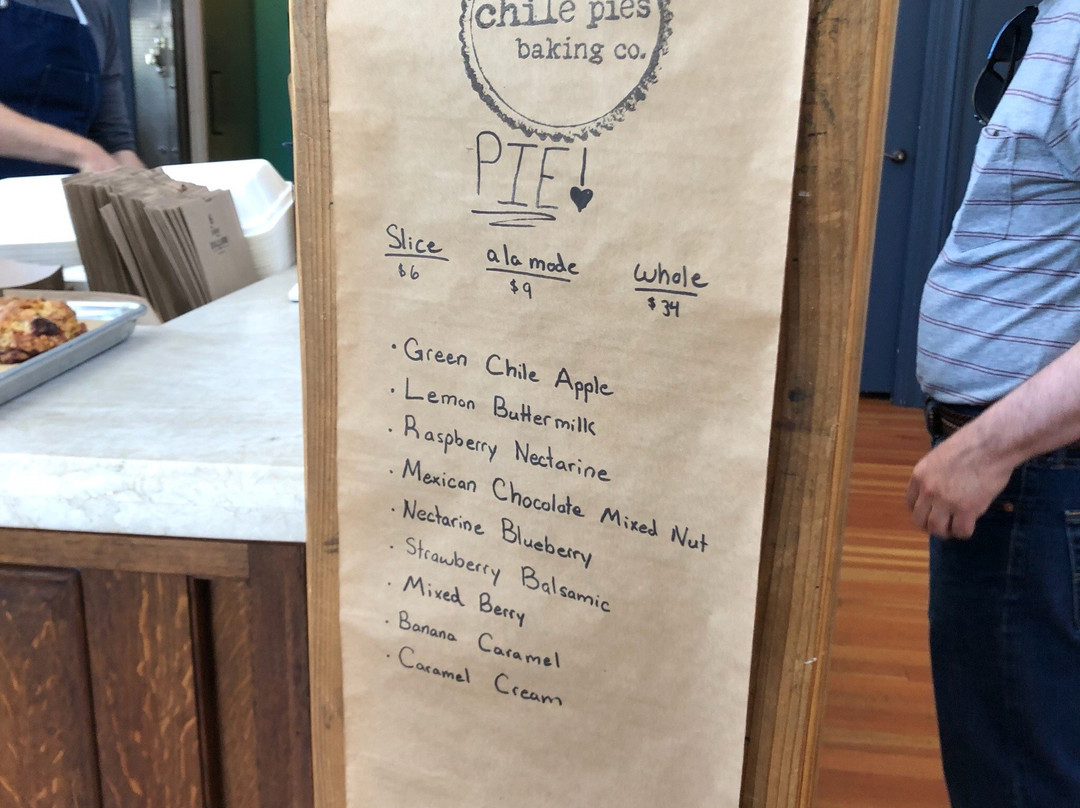 chile pies
baking co.
PIE!
Slice
$6
a la mode
$9
Whole
$34
· Green Chile Apple
· Lemon Buttermilk
· Raspberry Nectarine
· Mexican Chocolate Mixed Nut
· Nectarine Blueberry
· Strawberry Balsamic
· Mixed Berry
· Banana Caramel
· Caramel Cream